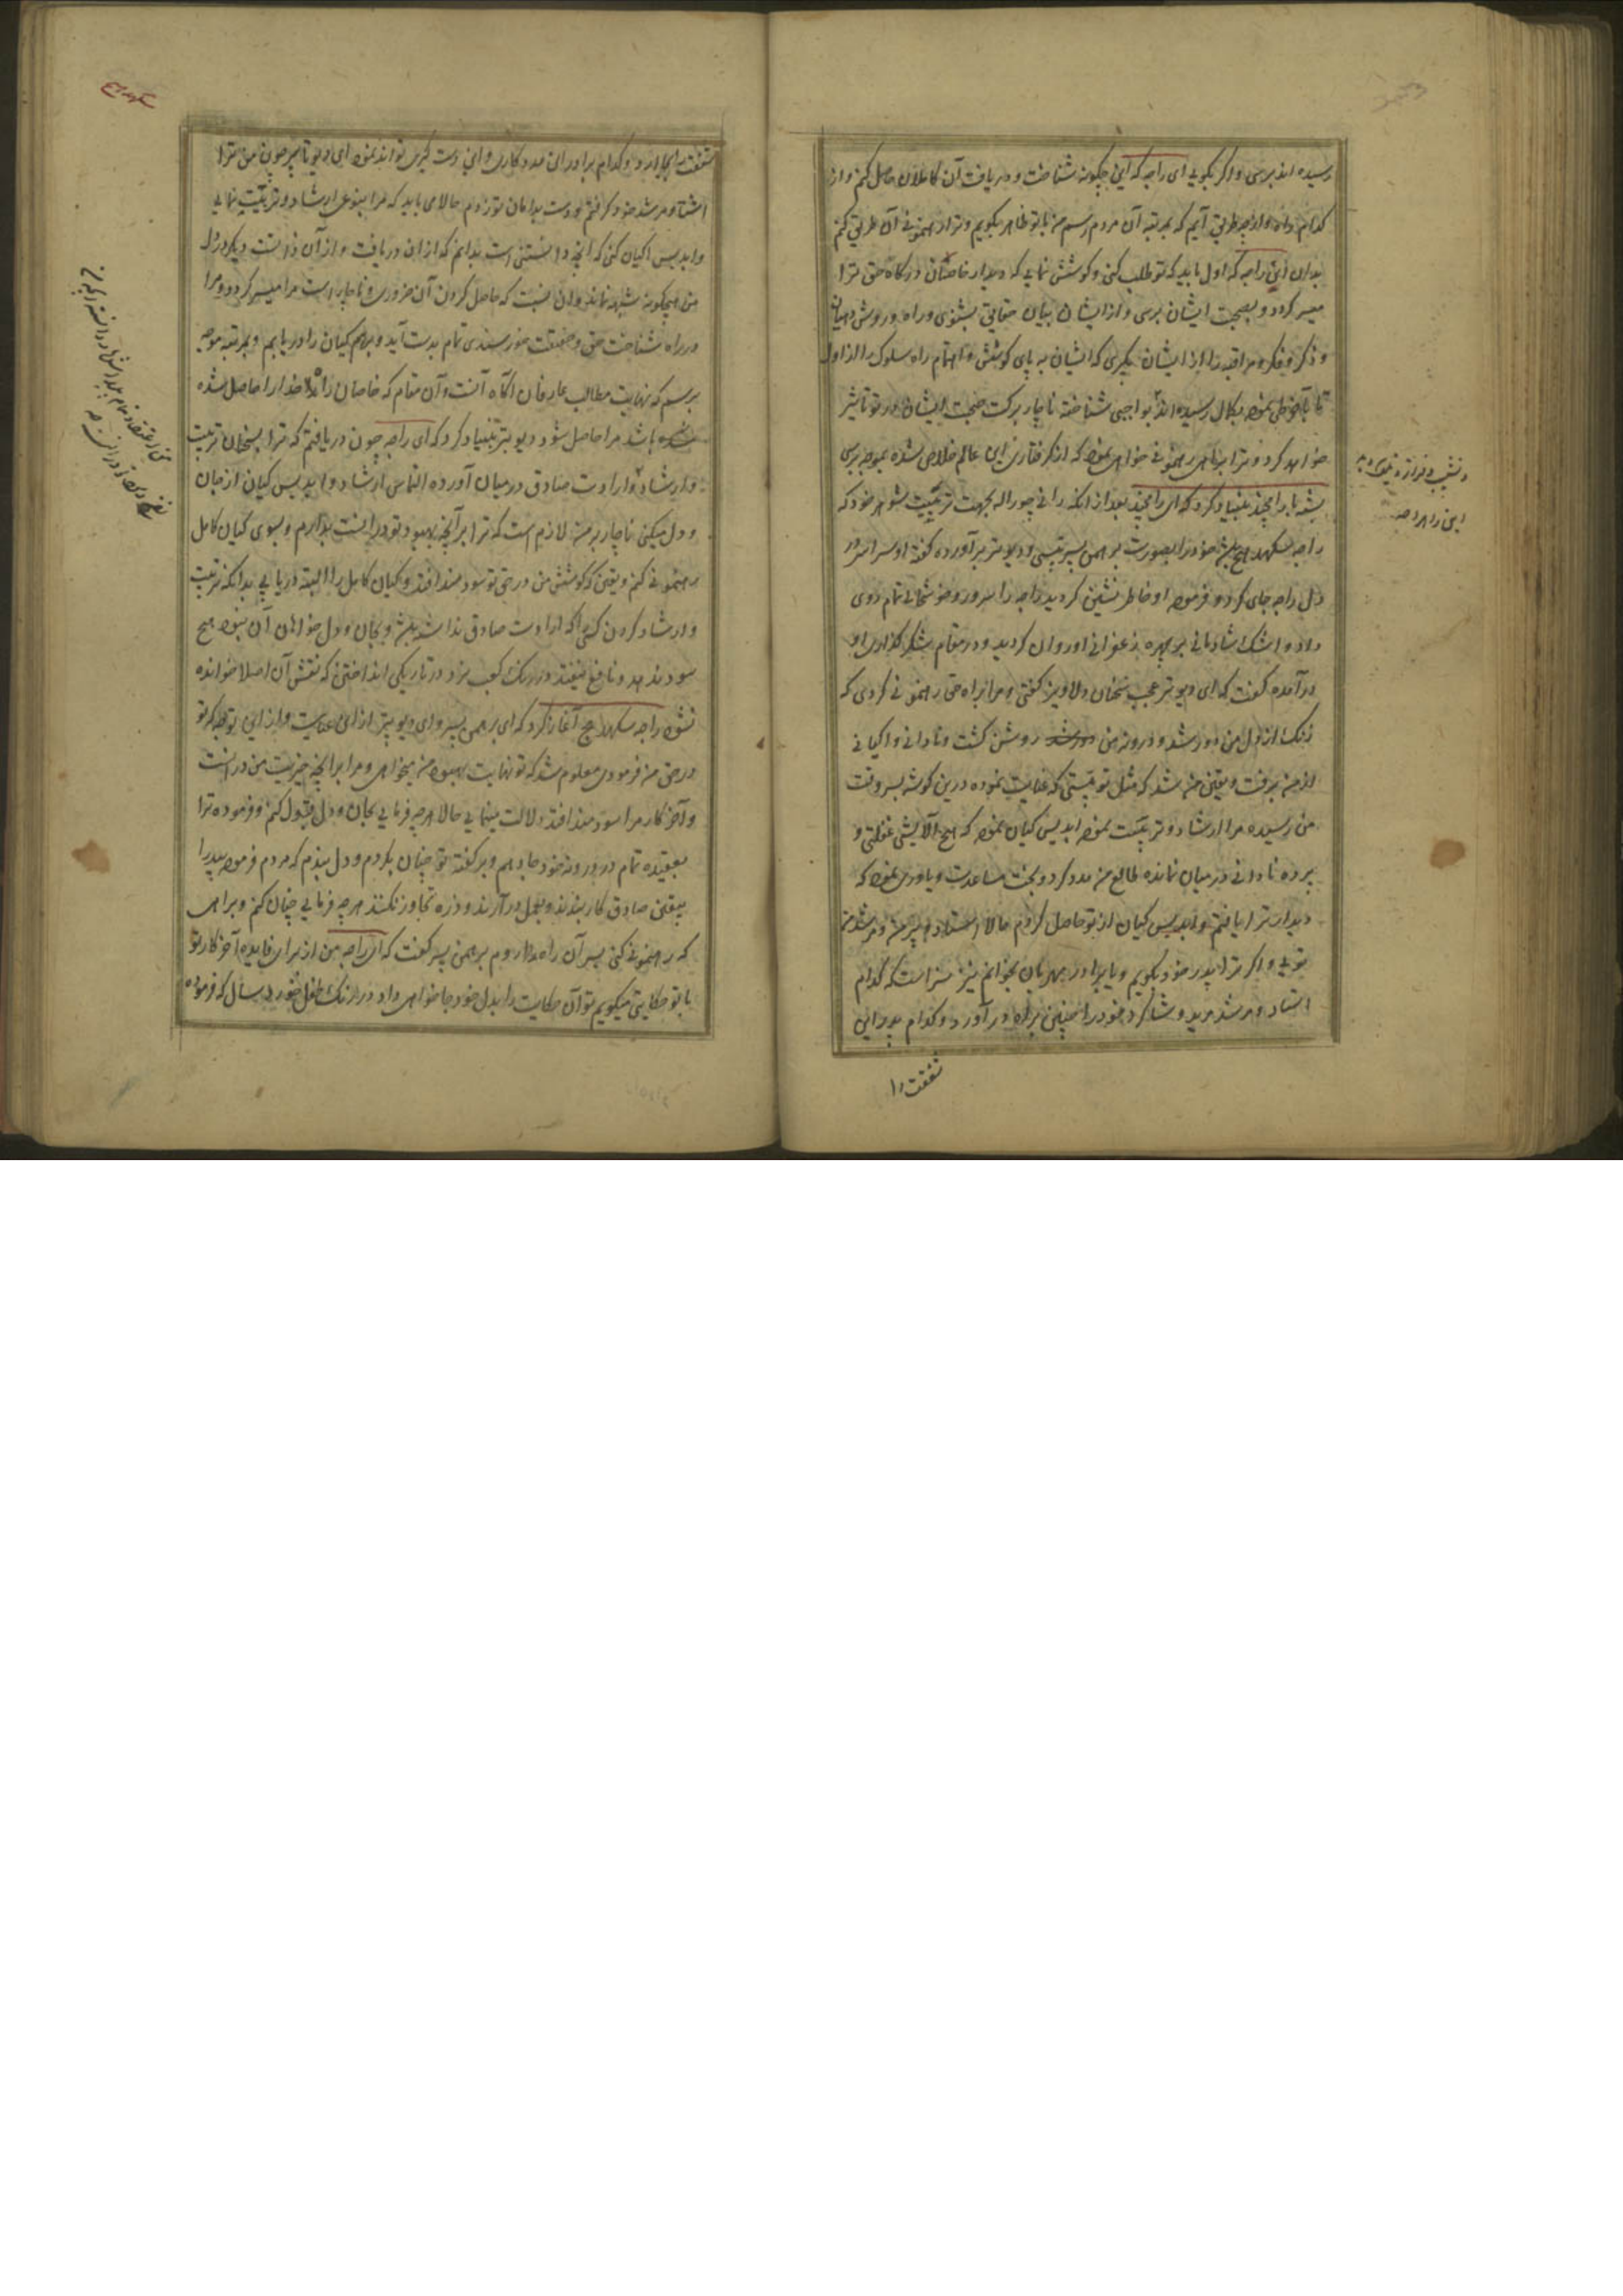 رسیده اند برسی و اگر بگویی ای راجه که این چگونه شناخت و دریافت آن کاملان حاصل کنم و از
کدام راه و از چه طریق آیم که بمرتبه آن مردم رسم من با تو ظاهر بگویم و ترا رهنمونی آن طریق کنم
بدان ای راجه که اول باید که تو طلب کنی و کوشش نمایی که دیدار خاصان درگاه حق ترا
میسر گردد و بصحبت ایشان برسی و از ایشان بیان حقایق بشنوی و راه و روش دهیان
و ذکر و فکر و مراقبه را از ایشان بگیری که ایشان به پای کوشش و اهتمام راه سلوک را از اول
تا بآخر طی نموده بکمال رسیده اند بواجبی شناخته ناچار برکت صحبت ایشان در تو تاثیر
خواهد کرد و ترا براهی رهنمونی خواهد نمود که از گرفتاری این عالم خلاص شده بموجه برسی
بشسته با رامچند بنیاد کرد که ای رامچند بعد از آنکه رانی چوراله بجهت تربیت شوهر خود که
راجه سکهدهج باشد خود را بصورت برهمن پسر تپسی و دیوپتر برآورده گفته او سراسر در
دل راجه جای کرد و فرموده او خاطر نشین گردید راجه را سرور و خوشحالی تمام روی
داد و اشک شادمانی بر چهره زعفرانی او روان گردید و در مقام شکرگذاری او
درآمده گفت که ای دیوپتر عجب سخنان دلاویز گفتی و مرا براه حق رهنمونی کردی که
زنگ از دل من دور شد و درونه من روشن گشت و نادانی و اگیانی
از من برفت و یقین من شد که مثل تو تپستی که عنایت نموده درین گوشه بسروقت
من رسیده مرا ارشاد و تربیت نموده اپدیس گیان نموده که هیچ آلایش غفلتی و
پرده نادانی در میان نمانده طالع من مدد کرد و بخت مساعدت و یاوری نموده که
دیدار ترا یافتم و اپدیس گیان از تو حاصل کردم حالا استادم و پیر من و مرشد من
تویی و اگر ترا پدر خود بگویم و یا برادر مهربان بخوانم نیز سزاست که کدام
استاد و مرشد مرید و شاگرد خود را چنین براه درآورد و کدام پدر این
شفقت را
و نشیب و فراز و نیک و بد
این راه را
شفقت را بجا آرد و کدام برادر این مددکاری و این دستگیری تواند نمود ای دیوپتر چون من ترا
استاد و مرشد خود گرفتم و دست بدامان تو زدم حالا می باید که مرا بنوعی ارشاد و تربیت نمایی
و اپدیس گیان کنی که آنچه دانستنی است بدانم که از آن دریافت و از آن دانست دیگر در دل
من هیچگونه شبهه نماند و آن نسبت که حاصل کردن آن ضروری و ناچار است مرا میسر گردد و مرا
در راه شناخت حق و حقیقت خورسندی تمام بدست آید و برهم گیان را دریابم و بمرتبه موجه
برسم که نهایت مطالب عارفان آگاه آنست و آن مقام که خاصان راه خدا را حاصل شده
باشد مرا حاصل شود دیوپتر بنیاد کرد که ای راجه چون دریافتم که ترا بسخنان تربیت
و ارشاد و ارادت صادق در میان آورده التماس ارشاد و اپدیس گیان از جان
و دل میکنی ناچار بر من لازم است که ترا بر آنچه بهبود تو در آنست بدارم و بسوی گیان کامل
رهنمونی کنم و یقین که کوشش من در حق تو سودمند افتد و گیان کامل را البته دریابی بدانکه تربیت
و ارشاد کردن کسی را که ارادت صادق نداشته باشد و بجان و دل خواهان آن نبود هیچ
سود ندهد و نافع نیفتد در رنگ کعب نرد در تاریکی انداختن که نقش آن اصلا خوانده
نشود راجه سکهدهج آغاز کرد که ای برهمن پسر و ای دیوپتر از این عنایت و از این توجه که تو
در حق من فرمودی معلوم شد که تو نهایت بهبود من میخواهی و مرا بر آنچه خیریت من در آنست
و آخر کار مرا سودمند افتد دلالت مینمایی حالا هرچه فرمایی بجان و دل قبول کنم و فرموده ترا
بعقیده تمام در درونه خود جا دهم و بر گفته تو چنان بگروم و دل بندم که مردم فرموده بید را
بیقین صادق کار بندند و بعمل درآرند و ذره تجاوز نکنند هرچه فرمایی چنان کنم و براهی
که رهنمونی کنی بسر آن راه روم برهمن پسر گفت که ای راجه من از برای فایده آخر کار تو
با تو حکایتی میگویم تو آن حکایت را بدل خود جا خواهی داد در رنگ طفل خورد سال که فرموده